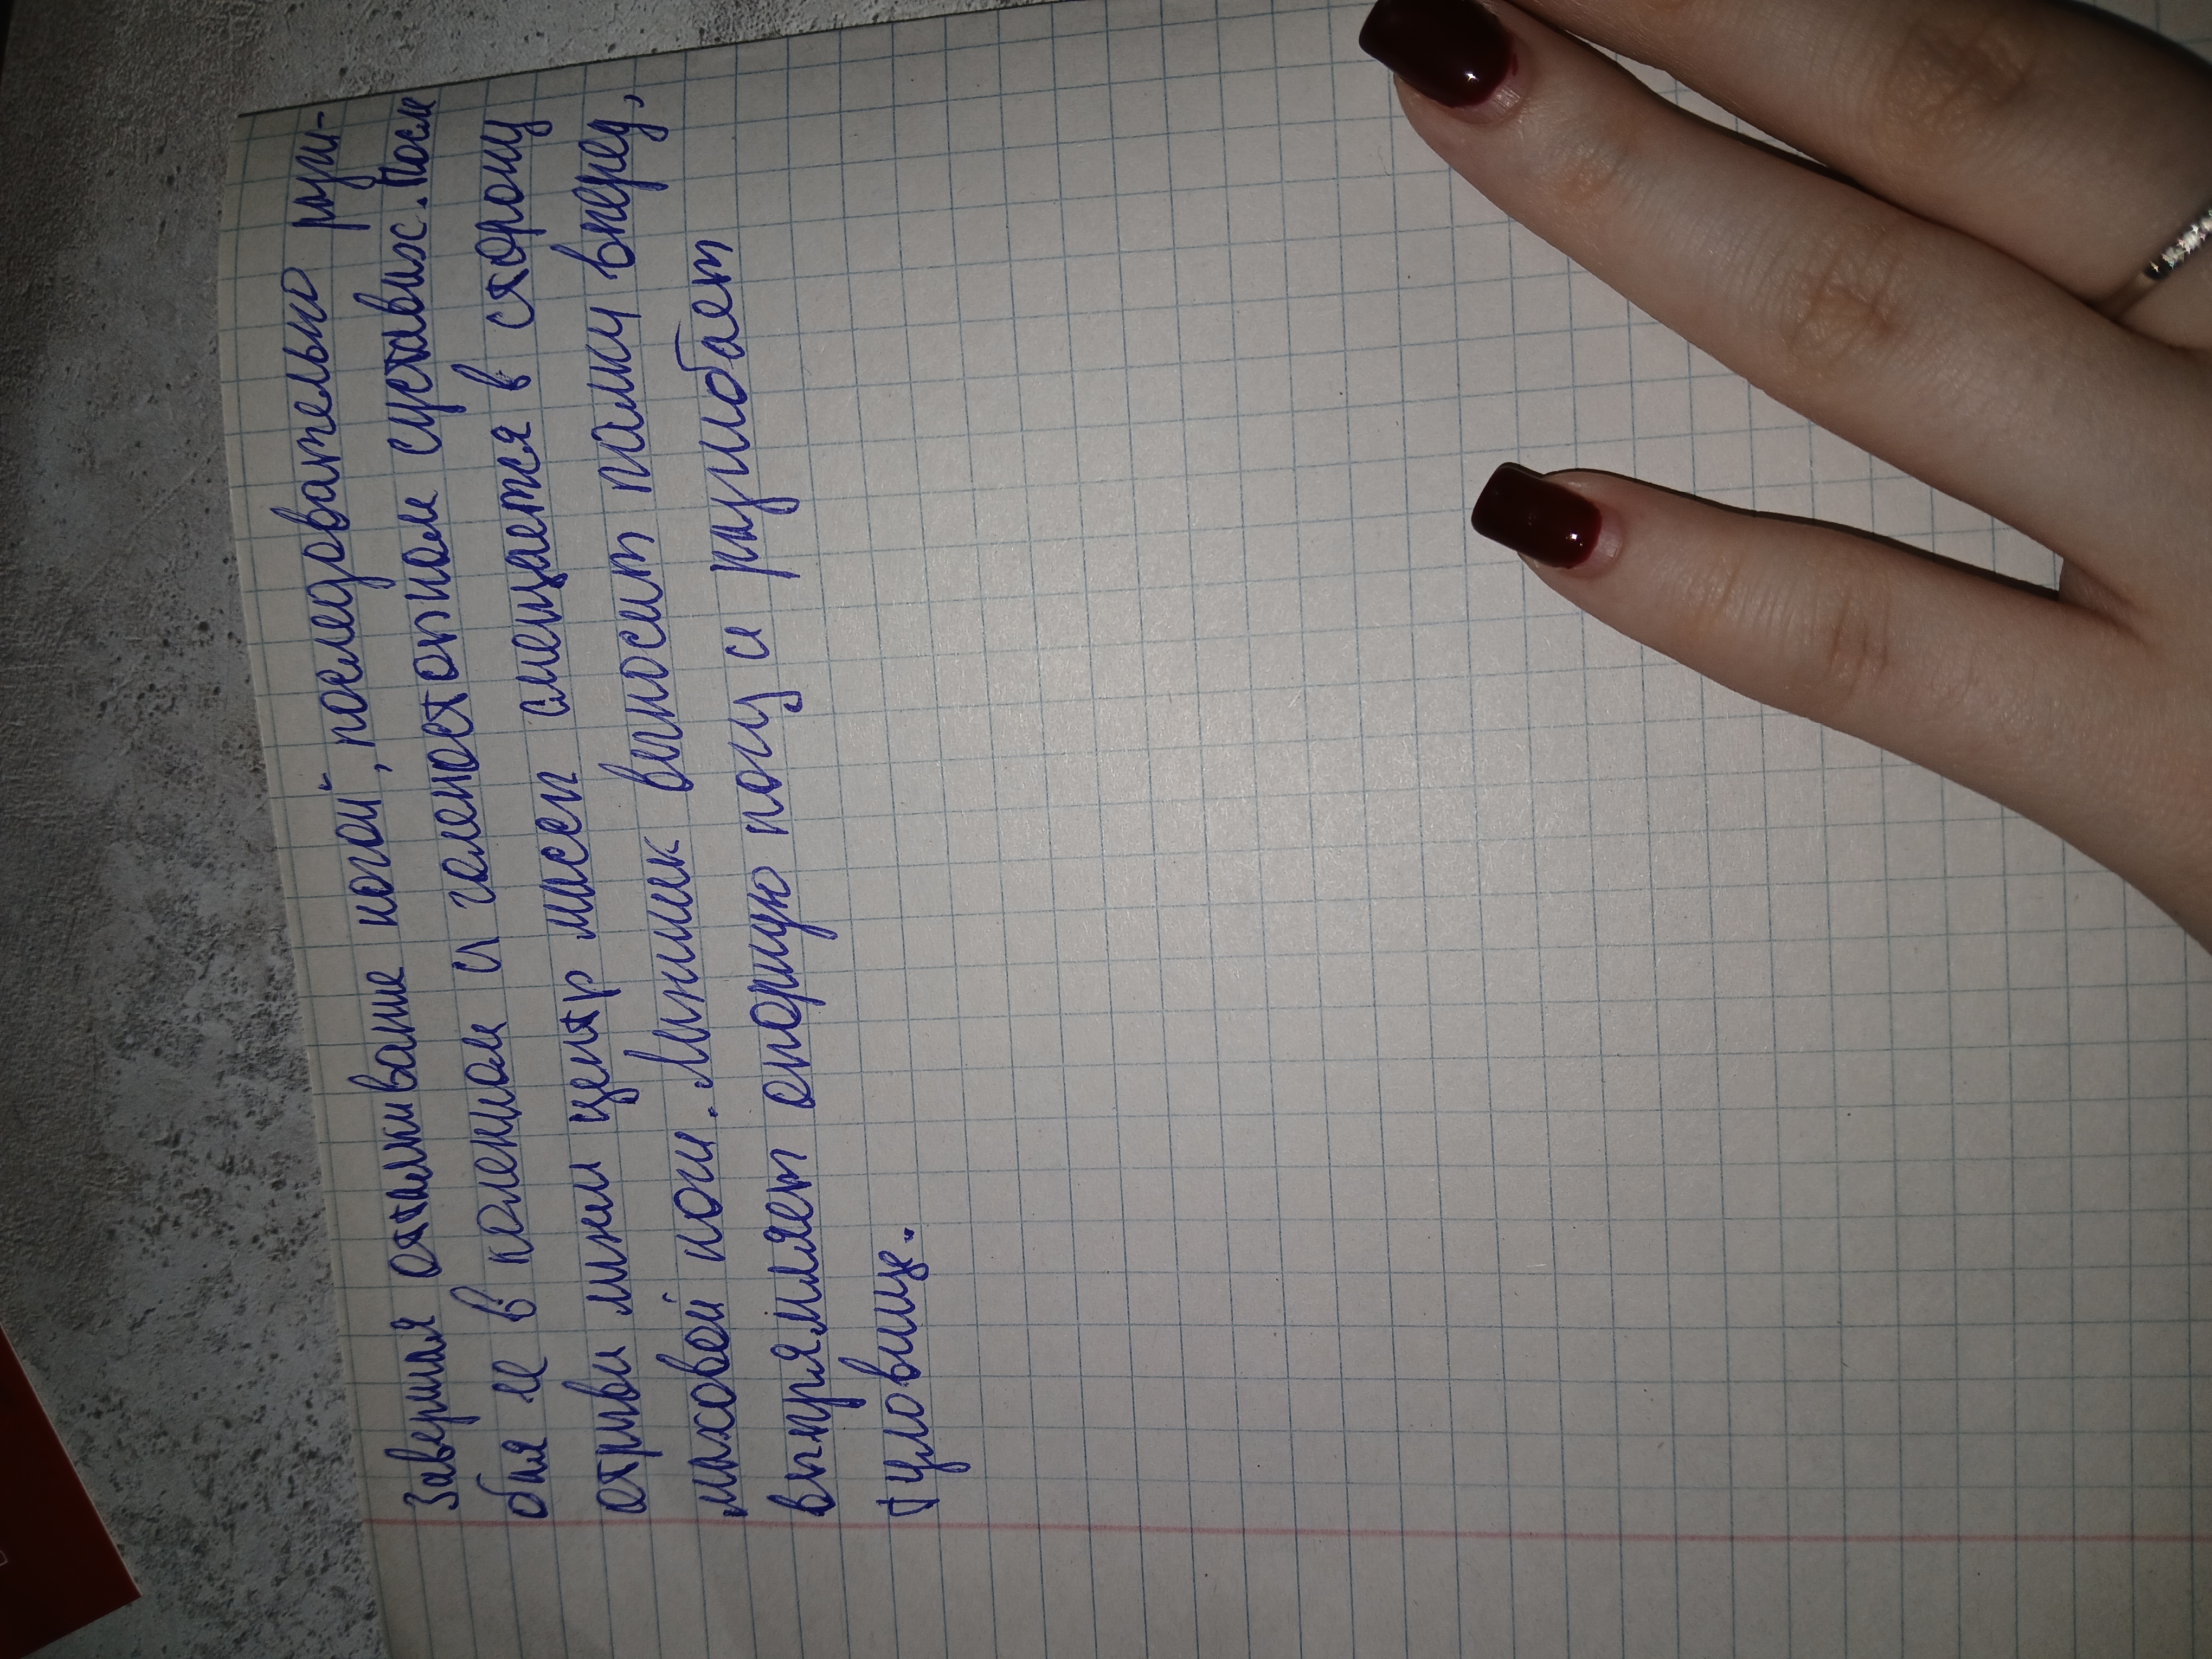 Завершая отталкивание ногой, последовательно разги-
бая ее в коленном и голеностопном суставах. После
отрыва лыжи центр массы смещается в сторону
маховой ноги. Лыжник выносит палки вперед,
выпрямляет опорную ногу и разгибает
туловище.